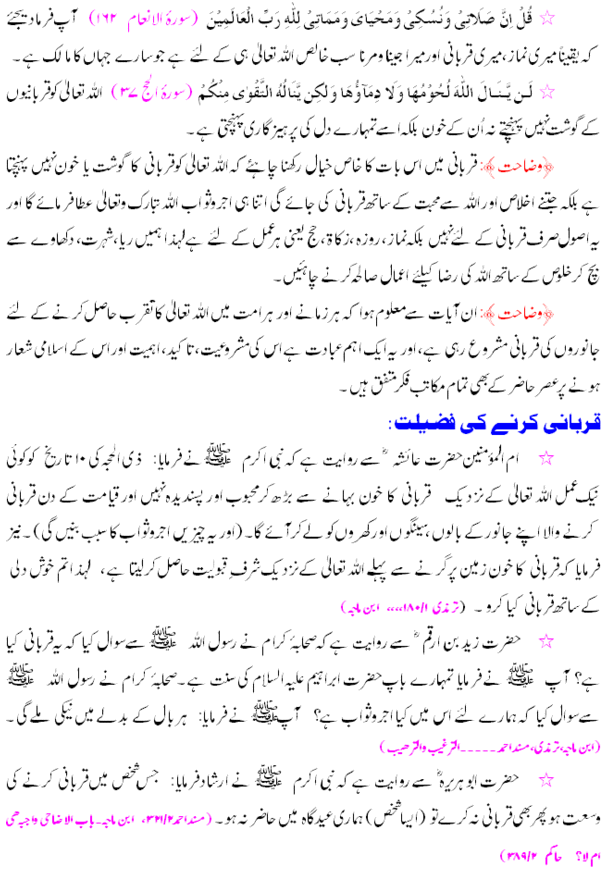 ☆ قُلْ اِنَّ صَلَاتِیْ وَنُسُکِیْ وَمَحْیَایَ وَمَمَاتِیْ لِلّٰہِ رَبِّ الْعَالَمِیْنَ (سورۂ الانعام ۱۶۲) آپ فرمادیجئے
کہ یقیناً میری نماز، میری قربانی اور میرا جینا و مرنا سب خالص اللہ تعالیٰ ہی کے لئے ہے جو سارے جہاں کا مالک ہے۔
☆ لَن یَّنَالَ اللّٰہَ لُحُوْمُهَا وَلَا دِمَآؤُهَا وَلٰکِن یَّنَالُہُ التَّقْوٰی مِنْکُمْ (سورۂ الحج ۳۷) اللہ تعالیٰ کو قربانیوں
کے گوشت نہیں پہنچتے نہ اُن کے خون بلکہ اسے تمہارے دل کی پرہیزگاری پہنچتی ہے۔
﴿وضاحت﴾: قربانی میں اس بات کا خاص خیال رکھنا چاہئے کہ اللہ تعالیٰ کو قربانی کا گوشت یا خون نہیں پہنچتا
ہے بلکہ جتنے اخلاص اور اللہ سے محبت کے ساتھ قربانی کی جائے گی اتنا ہی اجروثواب اللہ تبارک وتعالیٰ عطا فرمائے گا اور
یہ اصول صرف قربانی کے لئے نہیں بلکہ نماز، روزہ، زکاۃ، حج یعنی ہر عمل کے لئے ہے لہذا ہمیں ریا، شہرت، دکھاوے سے
بچ کر خلوص کے ساتھ اللہ کی رضا کیلئے اعمال صالحہ کرنے چاہئیں۔
﴿وضاحت﴾: ان آیات سے معلوم ہوا کہ ہر زمانے اور ہر امت میں اللہ تعالیٰ کا تقرب حاصل کرنے کے لئے
جانوروں کی قربانی مشروع رہی ہے، اور یہ ایک اہم عبادت ہے اس کی مشروعیت، تاکید، اہمیت اور اس کے اسلامی شعار
ہونے پر عصر حاضر کے بھی تمام مکاتب فکر متفق ہیں۔
قربانی کرنے کی فضیلت:
☆ ام المؤمنین حضرت عائشہ ؓ سے روایت ہے کہ نبی اکرم ﷺ نے فرمایا: ذی الحجہ کی ۱۰ تاریخ کو کوئی
نیک عمل اللہ تعالیٰ کے نزدیک قربانی کا خون بہانے سے بڑھ کر محبوب اور پسندیدہ نہیں اور قیامت کے دن قربانی
کرنے والا اپنے جانور کے بالوں، سینگوں اور کھروں کو لے کر آئے گا۔ (اور یہ چیزیں اجروثواب کا سبب بنیں گی)۔ نیز
فرمایا کہ قربانی کا خون زمین پر گرنے سے پہلے اللہ تعالیٰ کے نزدیک شرفِ قبولیت حاصل کرلیتا ہے، لہذا تم خوش دلی
کے ساتھ قربانی کیا کرو۔ (ترمذی ۱/۱۸۰،،،، ابن ماجہ)
☆ حضرت زید بن ارقم ؓ سے روایت ہے کہ صحابۂ کرام نے رسول اللہ ﷺ سے سوال کیا کہ یہ قربانی کیا
ہے؟ آپ ﷺ نے فرمایا تمہارے باپ حضرت ابراہیم علیہ السلام کی سنت ہے۔ صحابۂ کرام نے رسول اللہ ﷺ
سے سوال کیا کہ ہمارے لئے اس میں کیا اجروثواب ہے؟ آپ ﷺ نے فرمایا: ہر بال کے بدلے میں نیکی ملے گی۔
(ابن ماجہ، ترمذی، مسند احمد۔۔۔۔۔الترغیب والترہیب)
☆ حضرت ابوہریرہ ؓ سے روایت ہے کہ نبی اکرم ﷺ نے ارشاد فرمایا: جس شخص میں قربانی کرنے کی
وسعت ہو پھر بھی قربانی نہ کرے تو (ایسا شخص) ہماری عیدگاہ میں حاضر نہ ہو۔ (مسند احمد ۲/۳۲۱، ابن ماجہ۔ باب الاضاحی واجبۃ ھی
ام لا؟ حاکم ۲/۳۸۹)